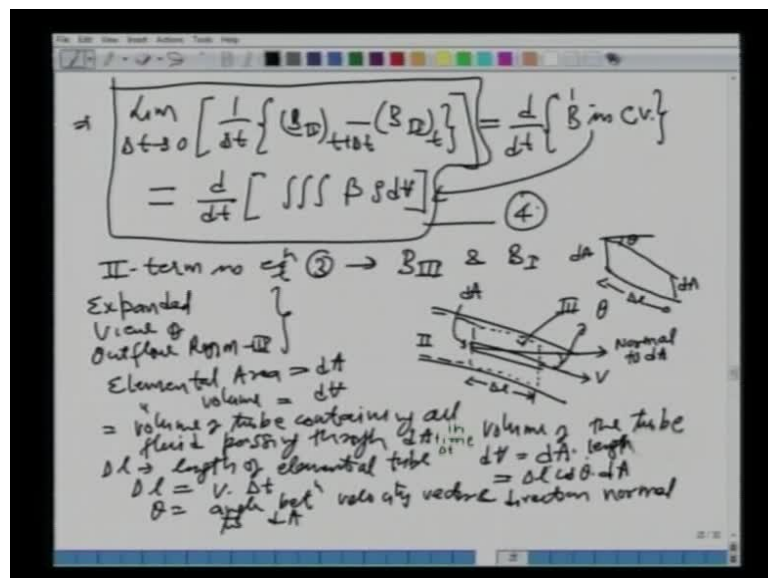 File Edit View Insert Actions Tools Help
⇒ Lim Δt→0 [ 1/Δt { (B_II)_t+Δt − (B_II)_t } ] = d/dt { B in C.V. }
= d/dt [ ∫∫∫ β ρ d∀ ] — ④
II-term in eqn ③ → B_III & B_I
dA θ
dA
Δl
Expanded
View of
Outflow Region-III
dA
III
θ
II
Normal
to dA
V
Δl
Elemental Area = dA
" volume = d∀
= volume of tube containing all
fluid passing through dA in time Δt
volume of the tube
d∀ = dA. length
= Δl cos θ. dA
Δl → length of elemental tube
Δl = V. Δt
θ = angle betn velocity vector & direction normal
to dA
25/32
25